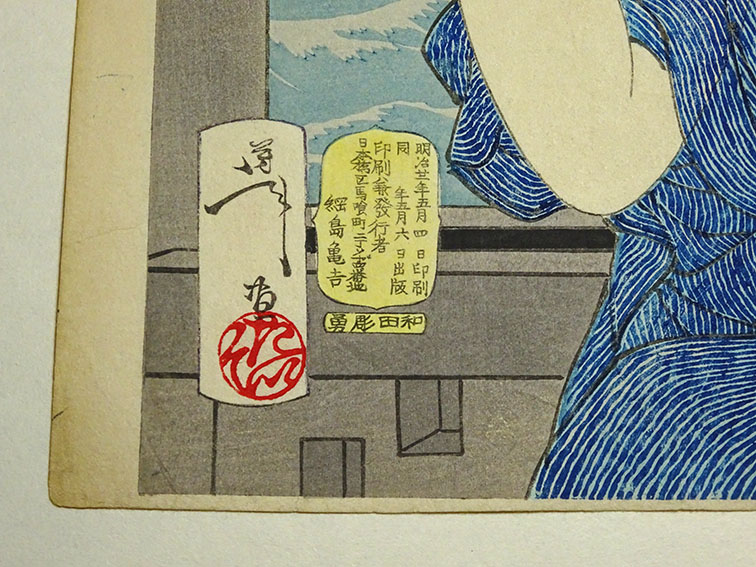 明治廿一年五月四日印刷
同年五月六日出版
印刷兼發行者
日本橋区馬喰町二丁メ十四番地
綱島亀吉
和田彫勇
芳年画